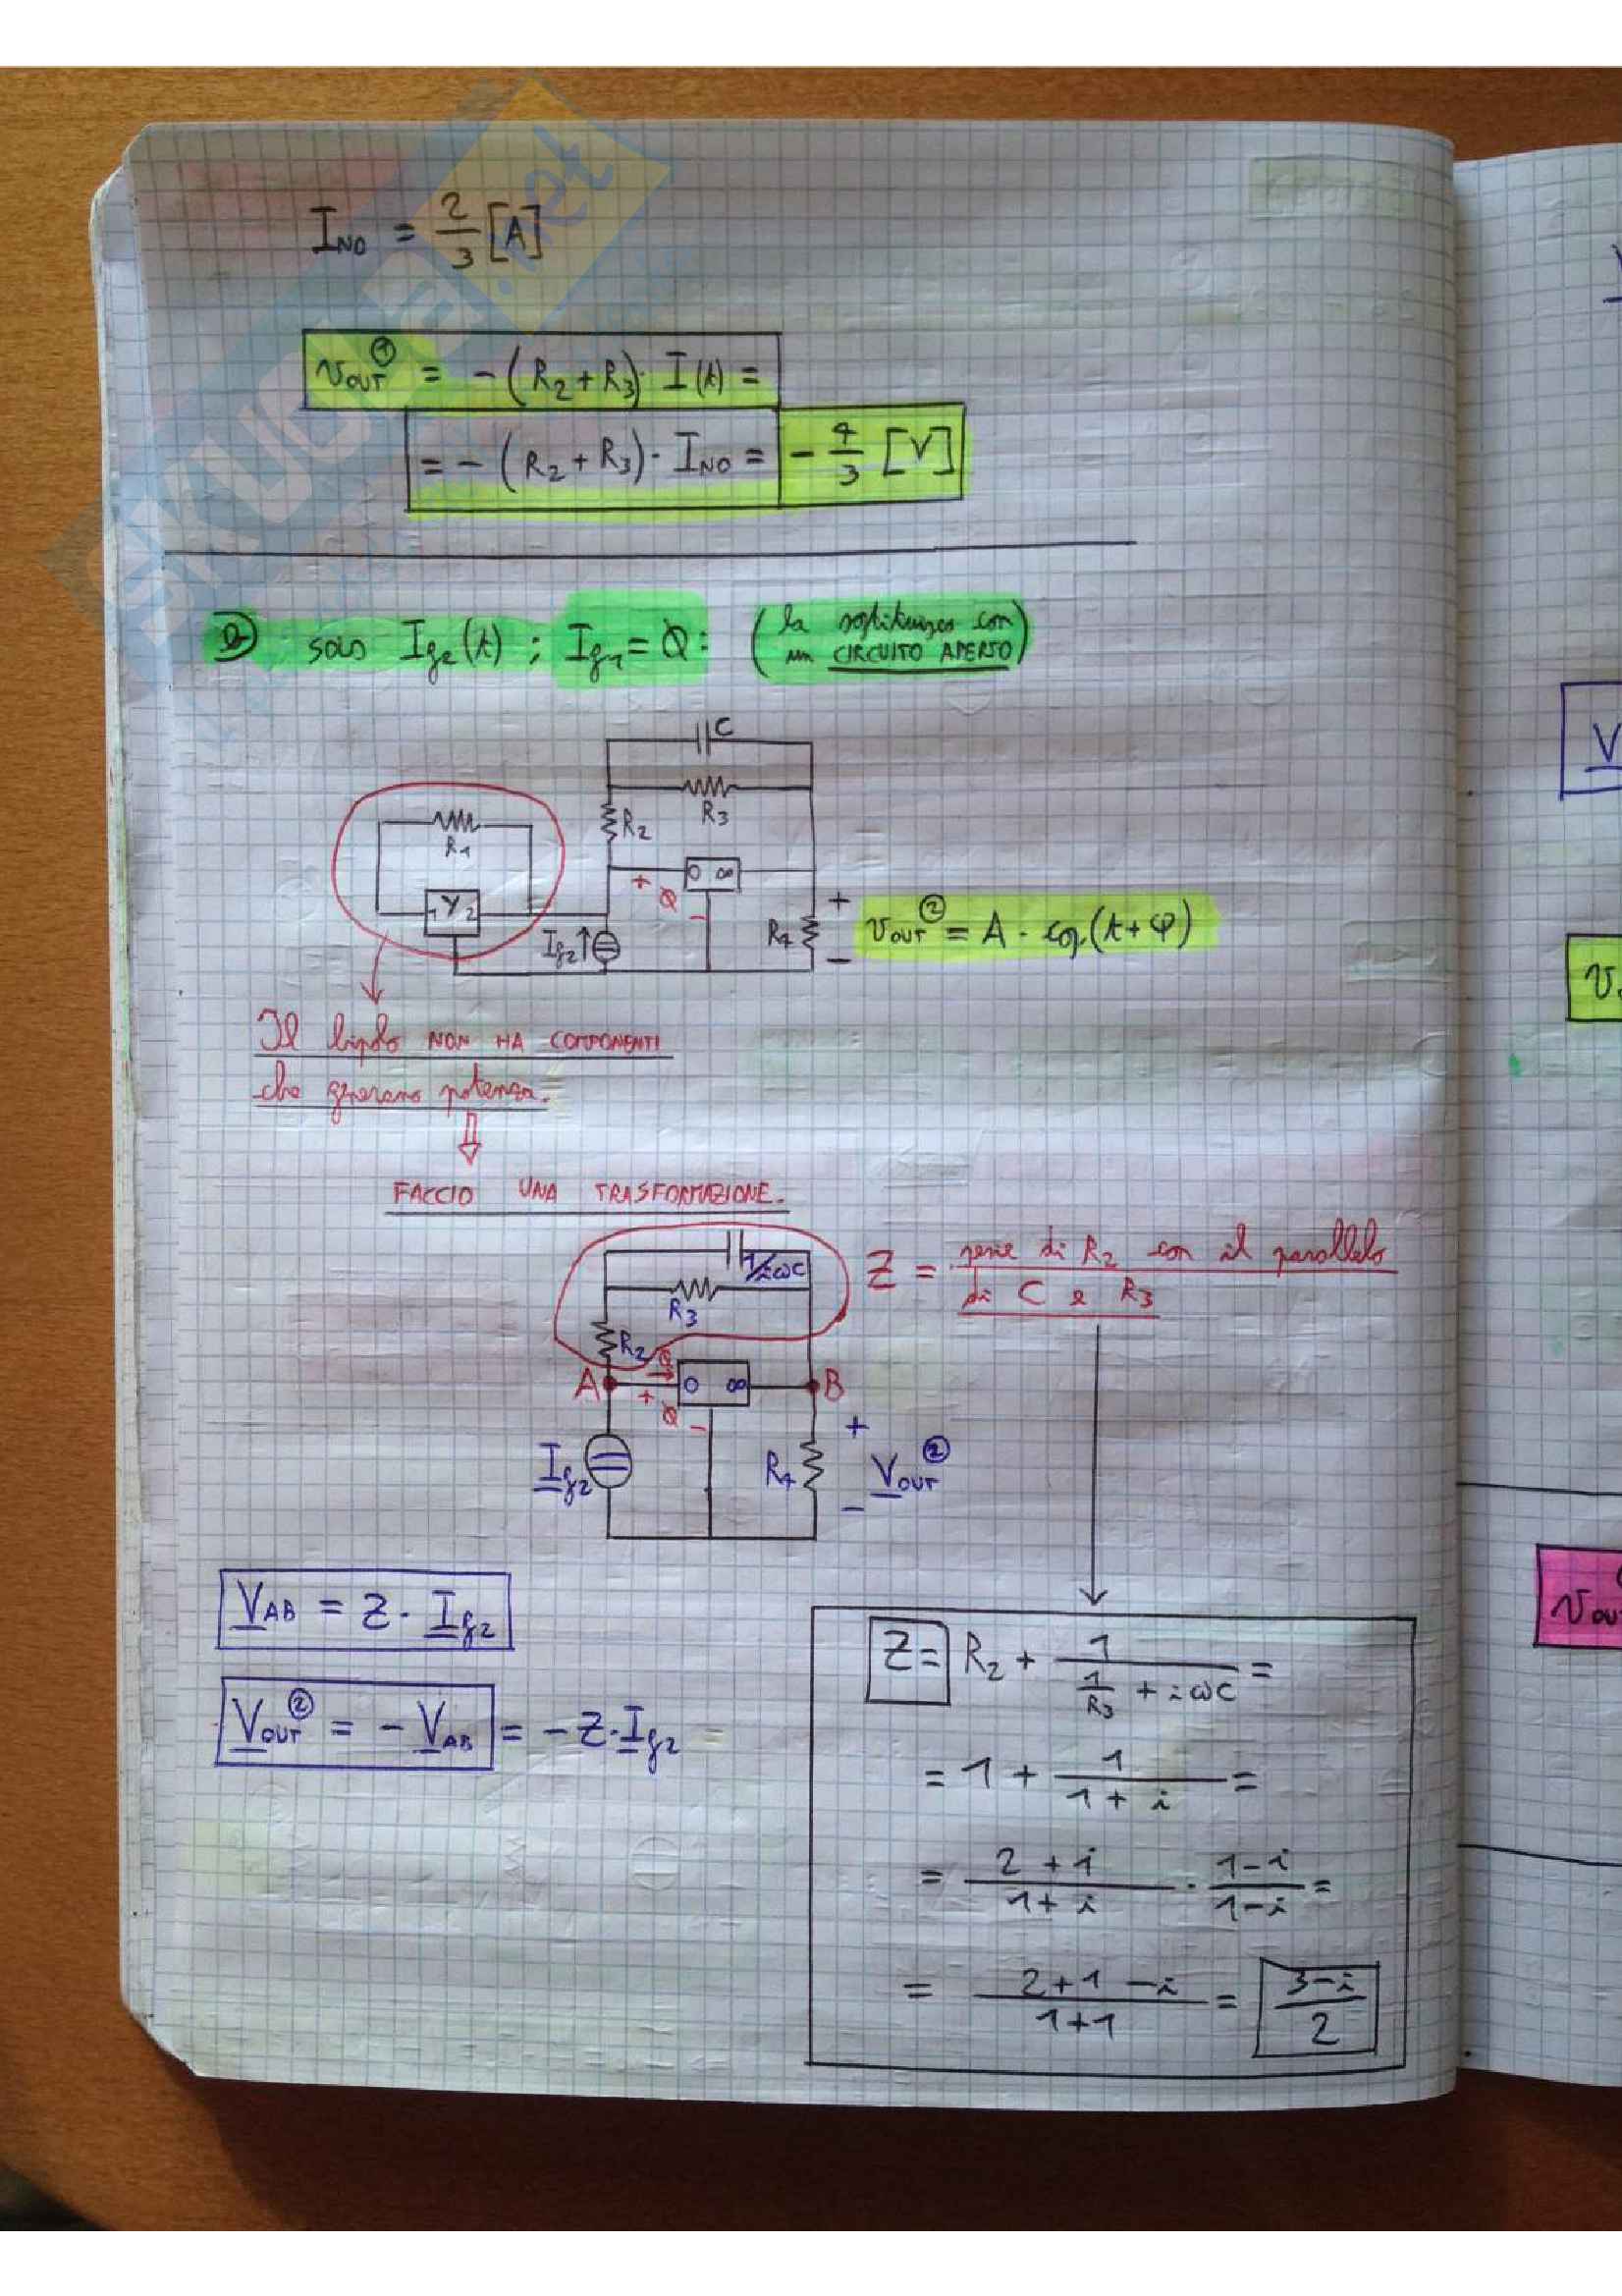 I_NO = 2/3 [A]
v_OUT^① = -(R2 + R3) · I(t) =
= -(R2 + R3) · I_NO = -4/3 [V]
② solo Ig2(t) ; Ig1 = 0 : (la sostituisco con
un CIRCUITO APERTO)
C
R3
R2
R1
1 Y 2
+ 0 -
0 ∞
Ig2 ↑
R4
+
-
v_OUT^② = A · cos(t + φ)
Il bipolo NON HA COMPONENTI
che generano potenza.
FACCIO UNA TRASFORMAZIONE.
1/iωC
R3
R2
Z = serie di R2 con il parallelo
di C e R3
0
A
+ 0 -
0 ∞
B
Ig2
R4
+
V_OUT^②
-
V_AB = Z · Ig2
V_OUT^② = - V_AB = - Z · Ig2 =
Z = R2 + 1/(1/R3 + iωC) =
= 1 + 1/(1 + i) =
= (2 + i)/(1 + i) · (1 - i)/(1 - i) =
= (2 + 1 - i)/(1 + 1) = (3 - i)/2
SKUOLA.net